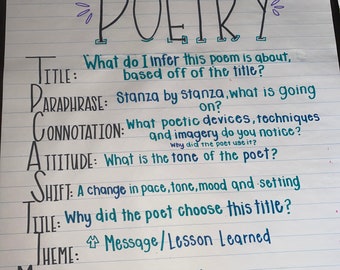 POETRY
TITLE: What do I infer this poem is about,
based off of the title?
PARAPHRASE: Stanza by stanza, what is going
on?
CONNOTATION: What poetic devices, techniques
and imagery do you notice?
Why did the poet use it?
ATTITUDE: What is the tone of the poet?
SHIFT: A change in pace, tone, mood and setting
TITLE: Why did the poet choose this title?
THEME: ⇧ Message/Lesson Learned